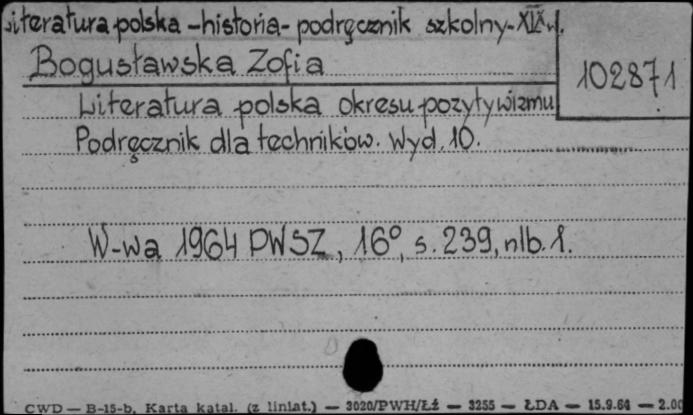 Literatura polska - historia - podręcznik szkolny - XIX w.
Bogusławska Zofia
102871
Literatura polska okresu pozytywizmu
Podręcznik dla techników. Wyd. 10.
W-wa 1964 PWSZ, 16°, s. 239, nlb. 1.
CWD — B-15-b, Karta katal. (z liniat.) — 3020/PWH/Łż — 3255 — ŁDA — 15.9.64 — 2.00